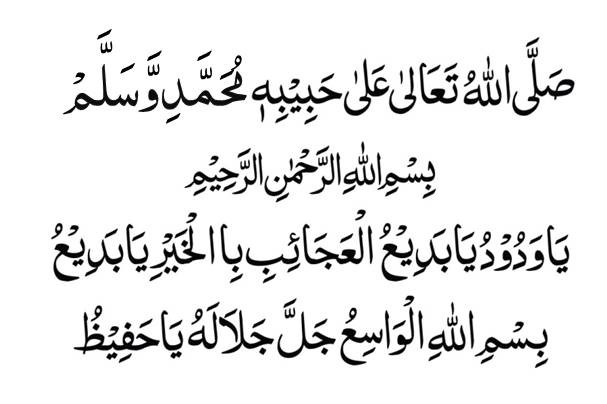 صَلَّی اللّٰهُ تَعَالٰی عَلٰی حَبِيْبِهٖ مُحَمَّدٍ وَّسَلَّمْ
بِسْمِ اللّٰهِ الرَّحْمٰنِ الرَّحِيْمِ
يَا وَدُوْدُ يَا بَدِيْعُ الْعَجَائِبِ بِا الْخَيْرِ يَا بَدِيْعُ
بِسْمِ اللّٰهِ الْوَاسِعُ جَلَّ جَلَالَهُ يَا حَفِيْظُ